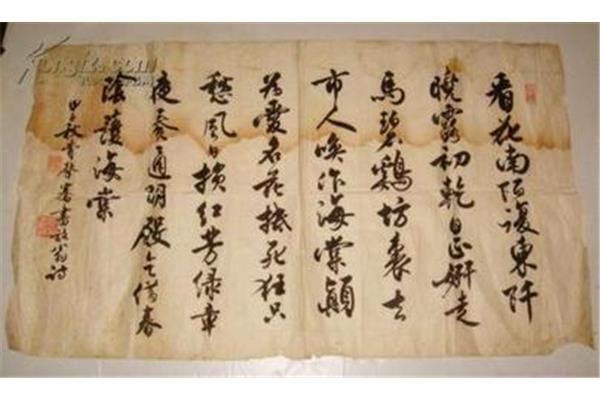 看花南陌復東阡
曉露初乾日正妍走
馬碧鷄坊裏去
市人喚作海棠顛
為愛名花抵死狂只
愁風日損紅芳綠章
夜奏通明殿乞借春
陰護海棠
甲子秋 書放翁詩